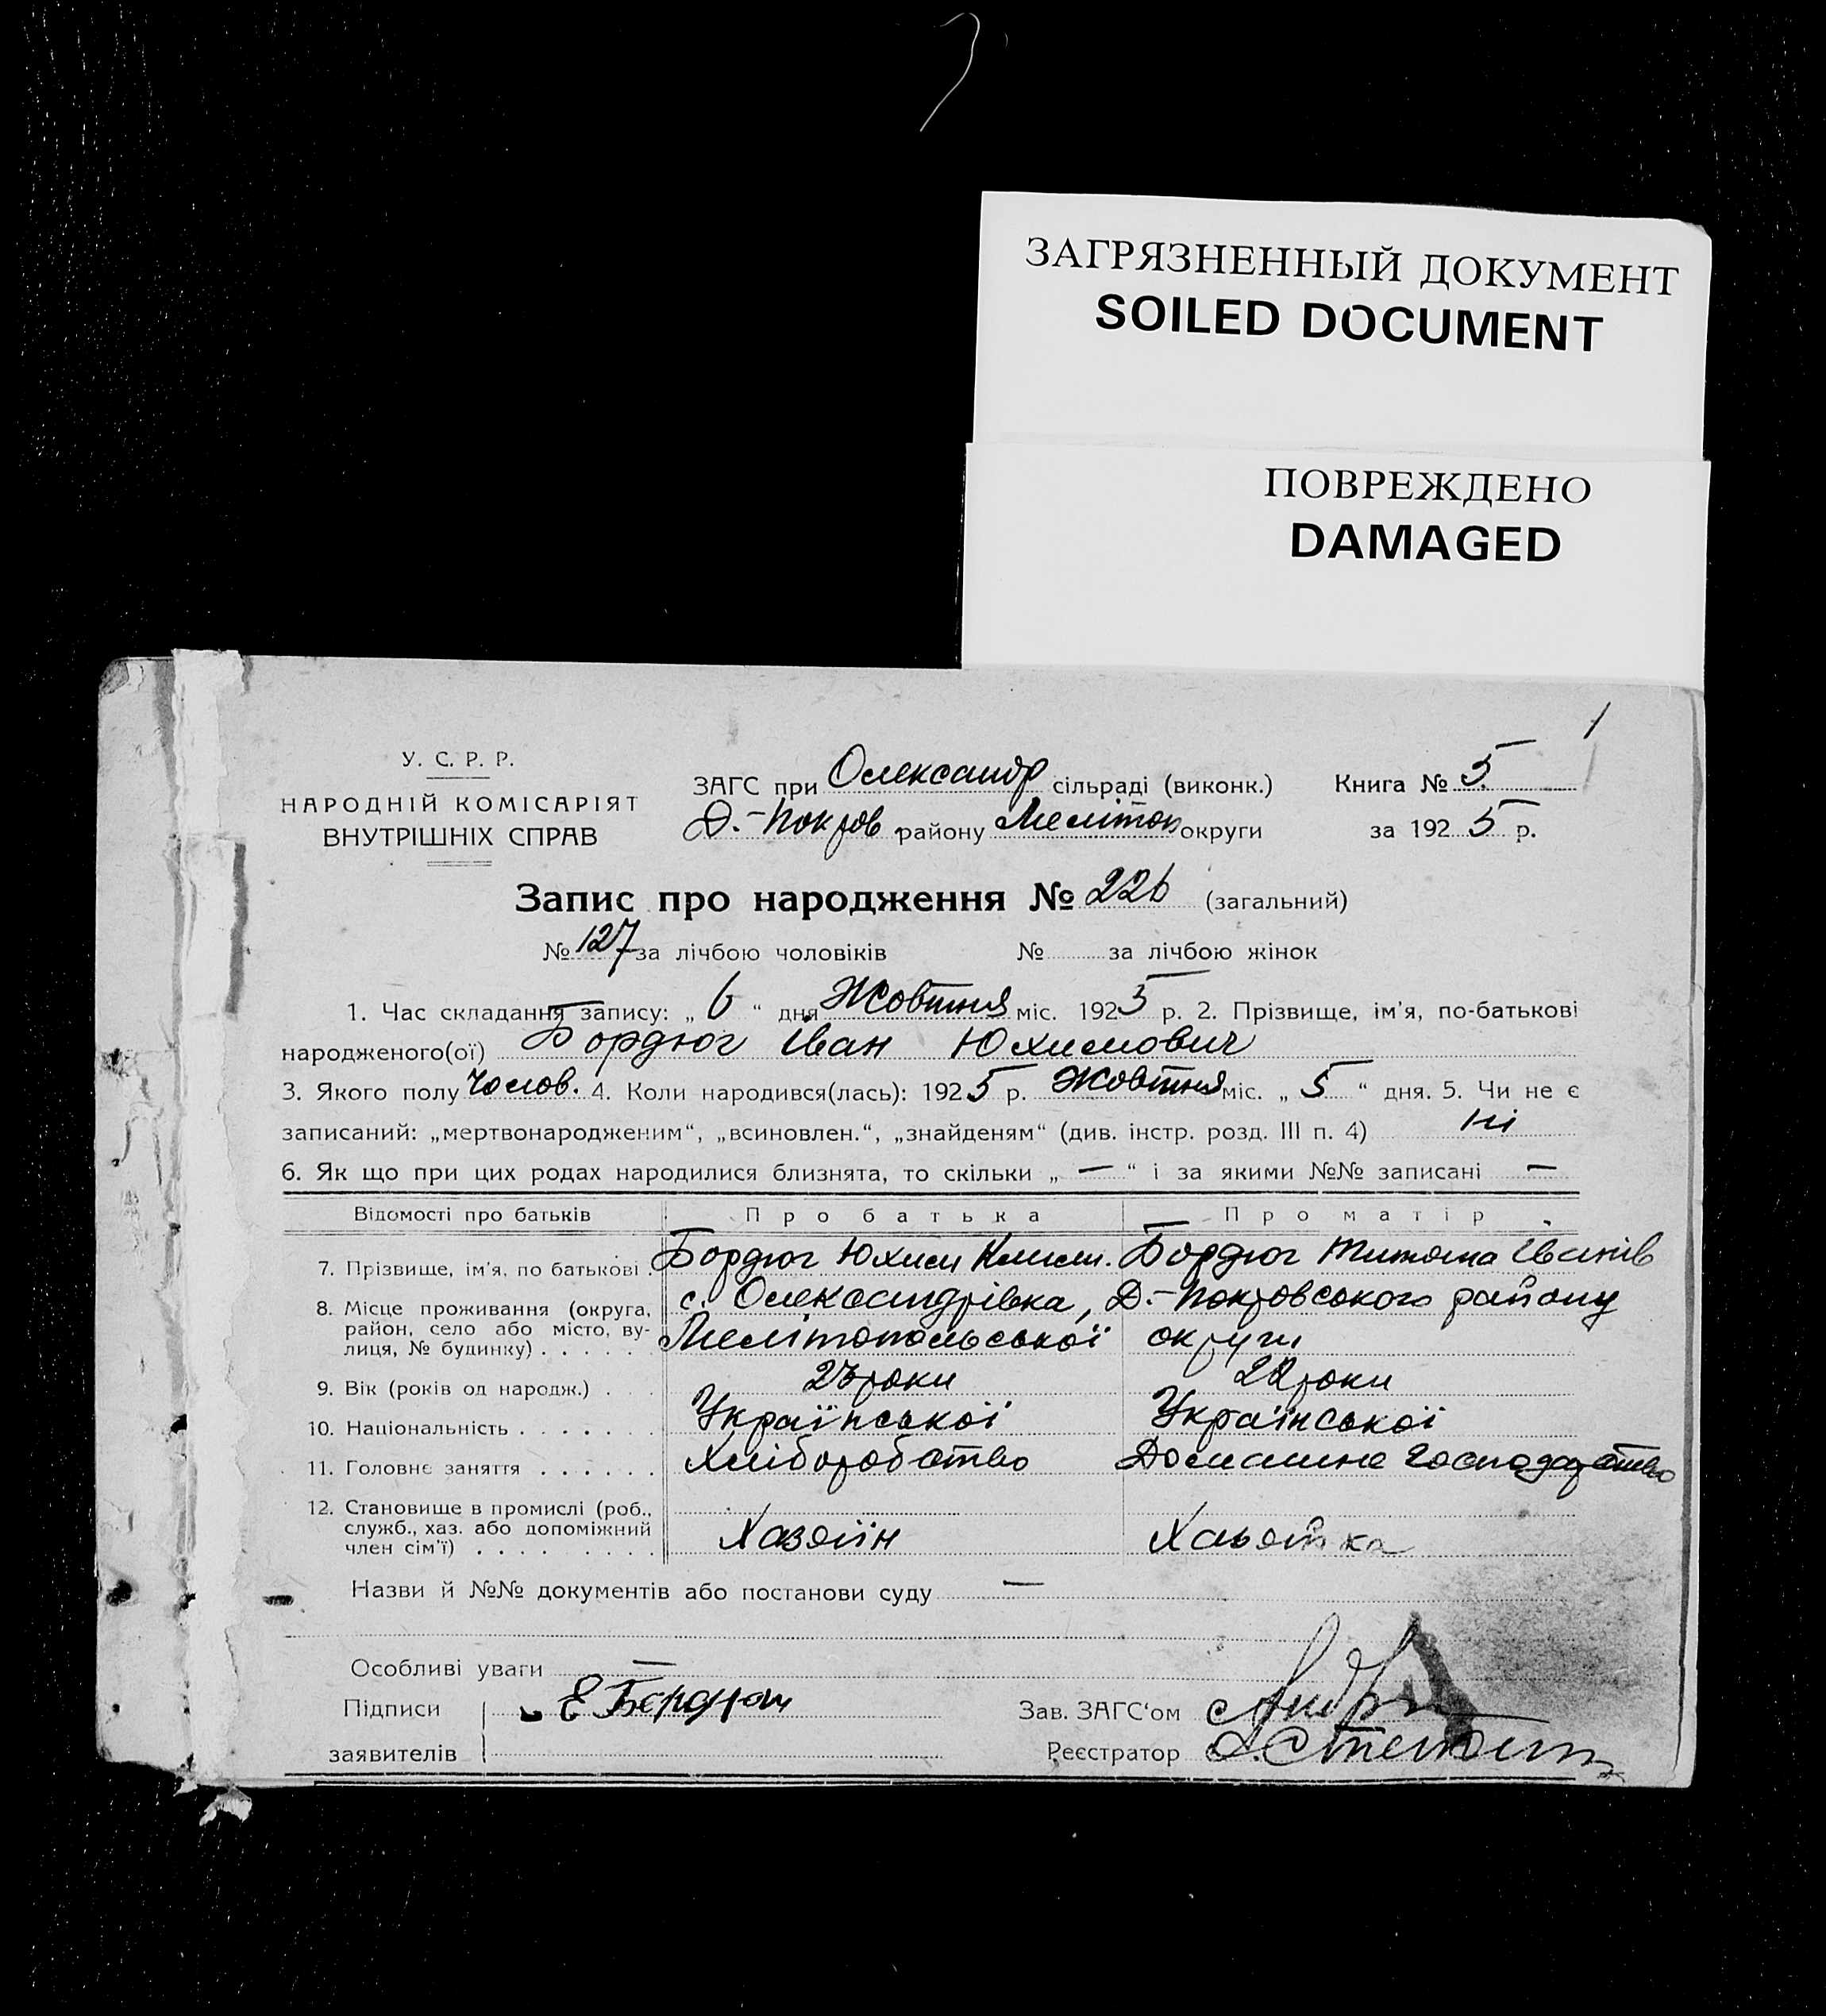 ЗАГРЯЗНЕННЫЙ ДОКУМЕНТ
SOILED DOCUMENT
ПОВРЕЖДЕНО
DAMAGED
1
У. С. Р. Р.
НАРОДНІЙ КОМІСАРІЯТ
ВНУТРІШНІХ СПРАВ
ЗАГС при Олександр сільраді (виконк.) Книга № 5
Д.-Покров району Мелітоп округи за 1925 р.
Запис про народження № 226 (загальний)
№ 127 за лічбою чоловіків № за лічбою жінок
1. Час складання запису: „ 6 “ дня Жовтня міс. 1925 р. 2. Прізвище, ім'я, по-батькові
народженого(ої) Бордюг Іван Юхимович
3. Якого полу Чолов. 4. Коли народився(лась): 1925 р. Жовтня міс. „ 5 “ дня. 5. Чи не є
записаний: „мертвонародженим“, „всиновлен.“, „знайденям“ (див. інстр. розд. III п. 4) ні
6. Як що при цих родах народилися близнята, то скільки „ — “ і за якими №№ записані —
Відомості про батьків Про батька Про матір
7. Прізвище, ім'я, по батькові . Бордюг Юхим Клим. Бордюг Іванів
8. Місце проживання (округа, с. Олександрівка, Д.-Покровського району
район, село або місто, ву-
лиця, № будинку) . . . . . Мелітопольської округи
9. Вік (років од народж.) . . 23 роки 22 роки
10. Національність . . . . . . . Української Української
11. Головнє заняття . . . . . . Хліборобство Домашнє господарство
12. Становище в промислі (роб.,
служб., хаз. або допоміжний
член сім'ї) . . . . . . . . . Хазяїн Хазяйка
Назви й №№ документів або постанови суду —
Особливі уваги —
Підписи Е Бордюг Зав. ЗАГС'ом
заявителів Реєстратор